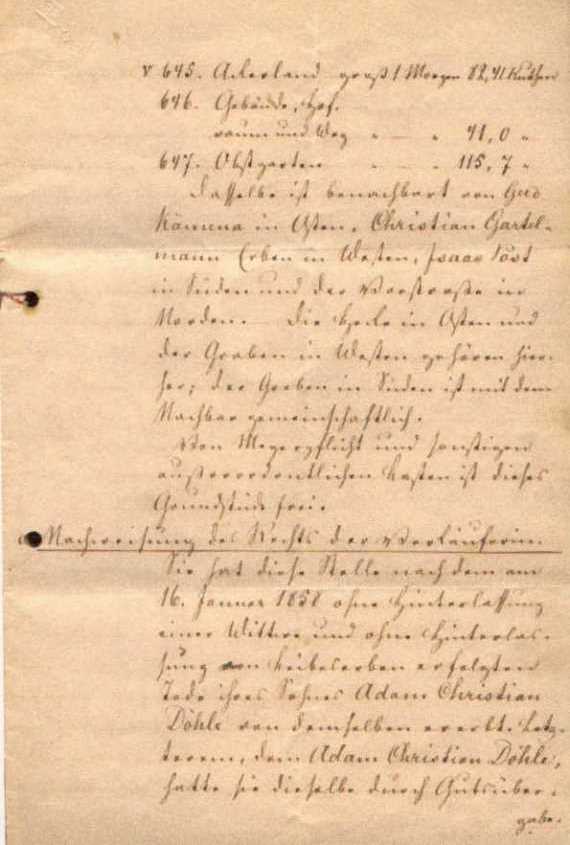 v 645. Ackerland groß 1 Morgen 82,41 Ruthen
646. Gebäude, Hof-
raum und Weg " — " 41,0 "
647. Obstgarten " — " 115,7 "
Dasselbe ist benachbart von
in Osten, Christian Gartel-
mann Erben in Westen, Isaac Post
in Süden und der Vorstraße in
Norden. Die Hecke in Osten und
der Graben in Westen gehören hier-
her; der Graben in Süden ist mit dem
Nachbar gemeinschaftlich.
Von Meyerpflicht und sonstigen
außerordentlichen Lasten ist dieses
Grundstück frei.
Nachweisung des Rechts der Verkäuferin.
Sie hat diese Stelle nach dem am
16. Januar 1858 ohne Hinterlassung
einer Wittwe und ohne Hinterlas-
sung von Leibeserben erfolgten
Tode ihres Sohnes Adam Christian
Döhle von demselben ererbt. Letz-
terem, dem Adam Christian Döhle,
hatte sie dieselbe durch Gutsüber-
gabe-